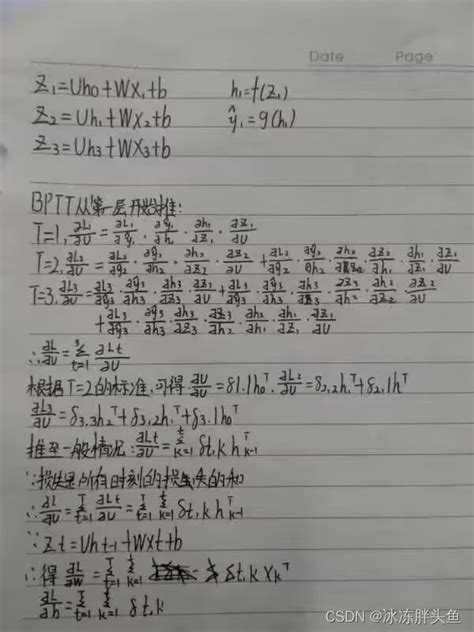 Date Page
Z₁=Uh₀+WX₁+b h₁=f(Z₁)
Z₂=Uh₁+WX₂+b ŷ₁=g(h₁)
Z₃=Uh₃+WX₃+b
BPTT从第一层开始推:
T=1, ∂L₁/∂U = ∂L₁/∂ŷ₁ · ∂ŷ₁/∂h₁ · ∂h₁/∂Z₁ · ∂Z₁/∂U
T=2, ∂L₂/∂U = ∂L₂/∂ŷ₂ · ∂ŷ₂/∂h₂ · ∂h₂/∂Z₂ · ∂Z₂/∂U + ∂L₂/∂ŷ₂ · ∂ŷ₂/∂h₂ · ∂h₂/∂Z₂ · ∂Z₂/∂h₁ · ∂h₁/∂Z₁ · ∂Z₁/∂U
T=3, ∂L₃/∂U = ∂L₃/∂ŷ₃ · ∂ŷ₃/∂h₃ · ∂h₃/∂Z₃ · ∂Z₃/∂U + ∂L₃/∂ŷ₃ · ∂ŷ₃/∂h₃ · ∂h₃/∂Z₃ · ∂Z₃/∂h₂ · ∂h₂/∂Z₂ · ∂Z₂/∂U
+ ∂L₃/∂ŷ₃ · ∂ŷ₃/∂h₃ · ∂h₃/∂Z₃ · ∂Z₃/∂h₂ · ∂h₂/∂Z₂ · ∂Z₂/∂h₁ · ∂h₁/∂Z₁ · ∂Z₁/∂U
∴ ∂L/∂U = Σ(t=1→3) ∂Lt/∂U
根据T=2的标准,可得 = δ1.1h₀ᵀ. ∂L₂/∂U = δ₂,₂h₁ᵀ+δ₂.₁hᵀ
∂L₃/∂U = δ₃.₃h₂ᵀ+δ₃,₂h₁ᵀ+δ₃.₁h₀ᵀ
推至一般情况: ∂Lt/∂U = Σ(k=1→t) δt,k hᵀₖ₋₁
∵损失是所有时刻的损失的和
∴ ∂L/∂U = Σ(t=1→T) ∂Lt/∂U = Σ(t=1→T) Σ(k=1→t) δt,k hᵀₖ₋₁
∵ Zt=Uht-1+WXt+b
∴得 ∂L/∂W = Σ(t=1→T) Σ(k=1→t) δt,k Xₖᵀ
∂L/∂b = Σ(t=1→T) Σ(k=1→t) δt,k
CSDN @冰冻胖头鱼